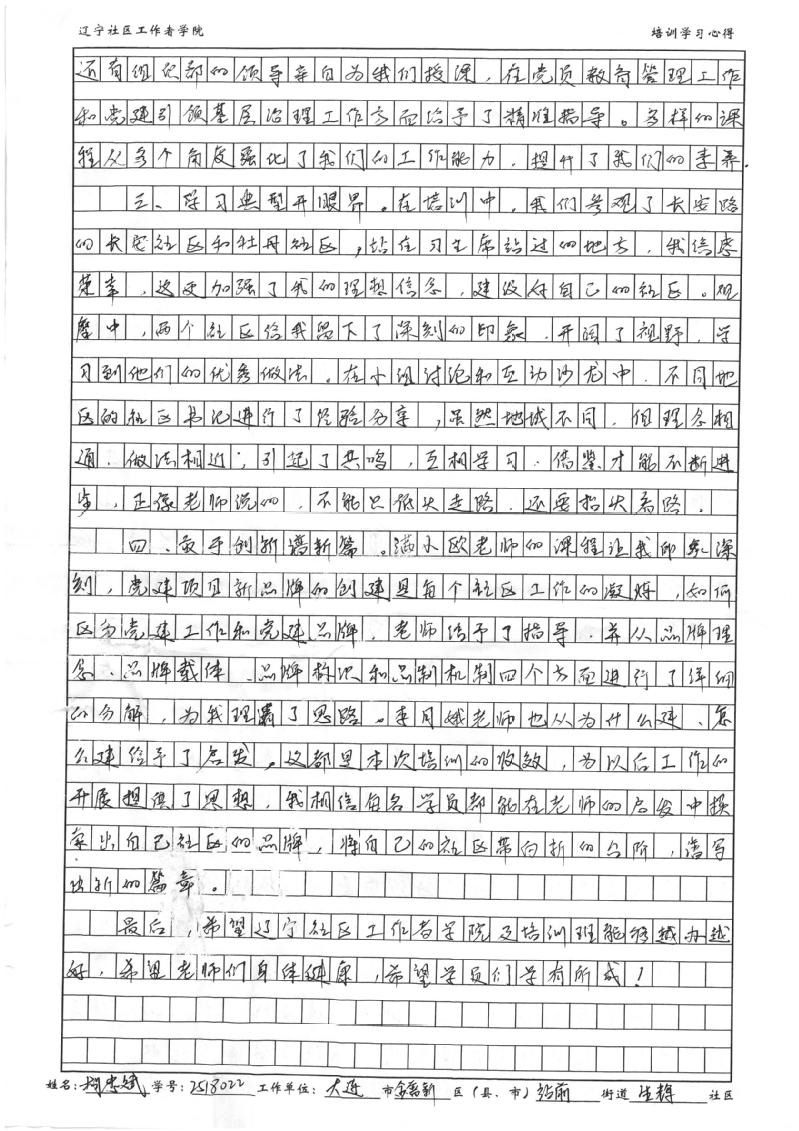 辽宁社区工作者学院 培训学习心得
还有组织部的领导亲自为我们授课，在党员教育管理工作
和党建引领基层治理工作方面给予了精准指导。多样的课
程从多个角度强化了我们的工作能力，提升了我们的素养。
三、学习典型开眼界。在培训中，我们参观了长安路
的长安社区和牡丹社区，站在习主席站过的地方，我倍感
荣幸，这更加强了我的理想信念，建设好自己的社区。观
摩中，两个社区给我留下了深刻的印象，开阔了视野，学
习到他们的优秀做法。在小组讨论和互动沙龙中，不同地
区的社区书记进行了经验分享，虽然地域不同，但理念相
通，做法相近；引起了共鸣，互相学习，借鉴才能不断进
步，正像老师说的，不能只低头走路，还要抬头看路。
四、敢于创新谱新篇。满小欧老师的课程让我印象深
刻，党建项目新品牌的创建是每个社区工作的凝炼，如何
区分党建工作和党建品牌，老师给予了指导，并从品牌理
念、品牌载体、品牌标识和品制机制四个方面进行了详细
的分解，为我理清了思路。李月娥老师也从为什么建、怎
么建给予了启发。这都是本次培训的收效，为以后工作的
开展提供了思想，我相信每名学员都能在老师的启发中探
索出自己社区的品牌，将自己的社区带向新的台阶，谱写
出新的篇章。
最后，希望辽宁社区工作者学院及培训班能够越办越
好，希望老师们身体健康，希望学员们学有所成！
姓名： 学号：2518022 工作单位：大连 市 金普新 区（县、市）站前 街道 生辉 社区